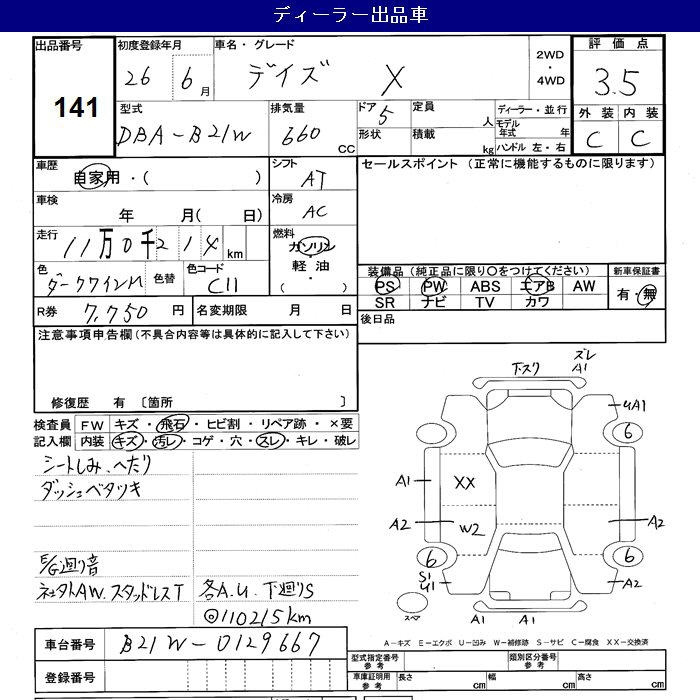 ディーラー出品車
出品番号 初度登録年月 車名・グレード 評価点
141
26 6月 デイズ X 2WD・4WD 3.5
型式 排気量 ドア 定員 ディーラー・並行 外装 内装
DBA-B21W 660 CC 5 人 モデル年式 年 C C
形状 積載 kg ハンドル 左・右
車歴 自家用・( ) シフト AT セールスポイント (正常に機能するものに限ります)
車検 年 月( 日) 冷房 AC
走行 11万0千214 km 燃料 ガソリン・軽油・( )
色 ダークワインM 色替 色コード C11
装備品 (純正品に限り○をつけてください) 新車保証書
PS PW ABS エアB AW 有・無
SR ナビ TV カワ
R券 7,750 円 名変期限 月 日 後日品
注意事項申告欄(不具合内容等は具体的に記入して下さい)
修復歴 有 〔箇所 〕
検査員 FW キズ・飛石・ヒビ割・リペア跡・×要
記入欄 内装 キズ・汚レ・コゲ・穴・スレ・キレ・破レ
シートしみ、へたり
ダッシュベタツキ
E/G廻り音
社外AW.スタッドレスT 各A.U.下廻りS
◎110215km
下スリ ズレ A1
UA1
6
A1 XX
A2 W2 A2
6 6
S1 U1 A2
スペア A1 A1
A-キズ E-エクボ U-凹み W-補修跡 S-サビ C-腐食 XX-交換済
車台番号 B21W-0129667
登録番号
型式指定番号 参考 類別区分番号 参考
車庫証明用 参考 長さ cm 幅 cm 高さ cm